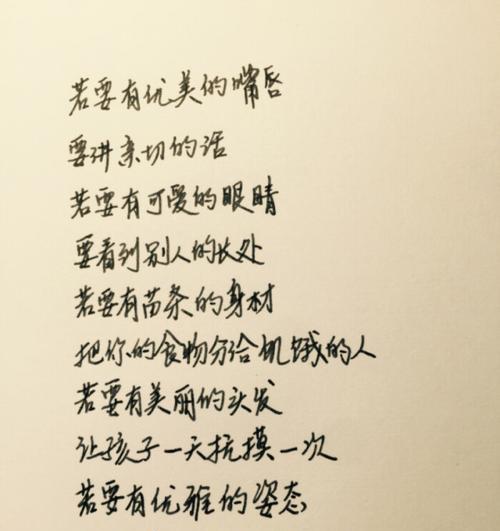 若要有优美的嘴唇
要讲亲切的话
若要有可爱的眼睛
要看到别人的长处
若要有苗条的身材
把你的食物分给饥饿的人
若要有美丽的头发
让孩子一天抚摸一次
若要有优雅的姿态